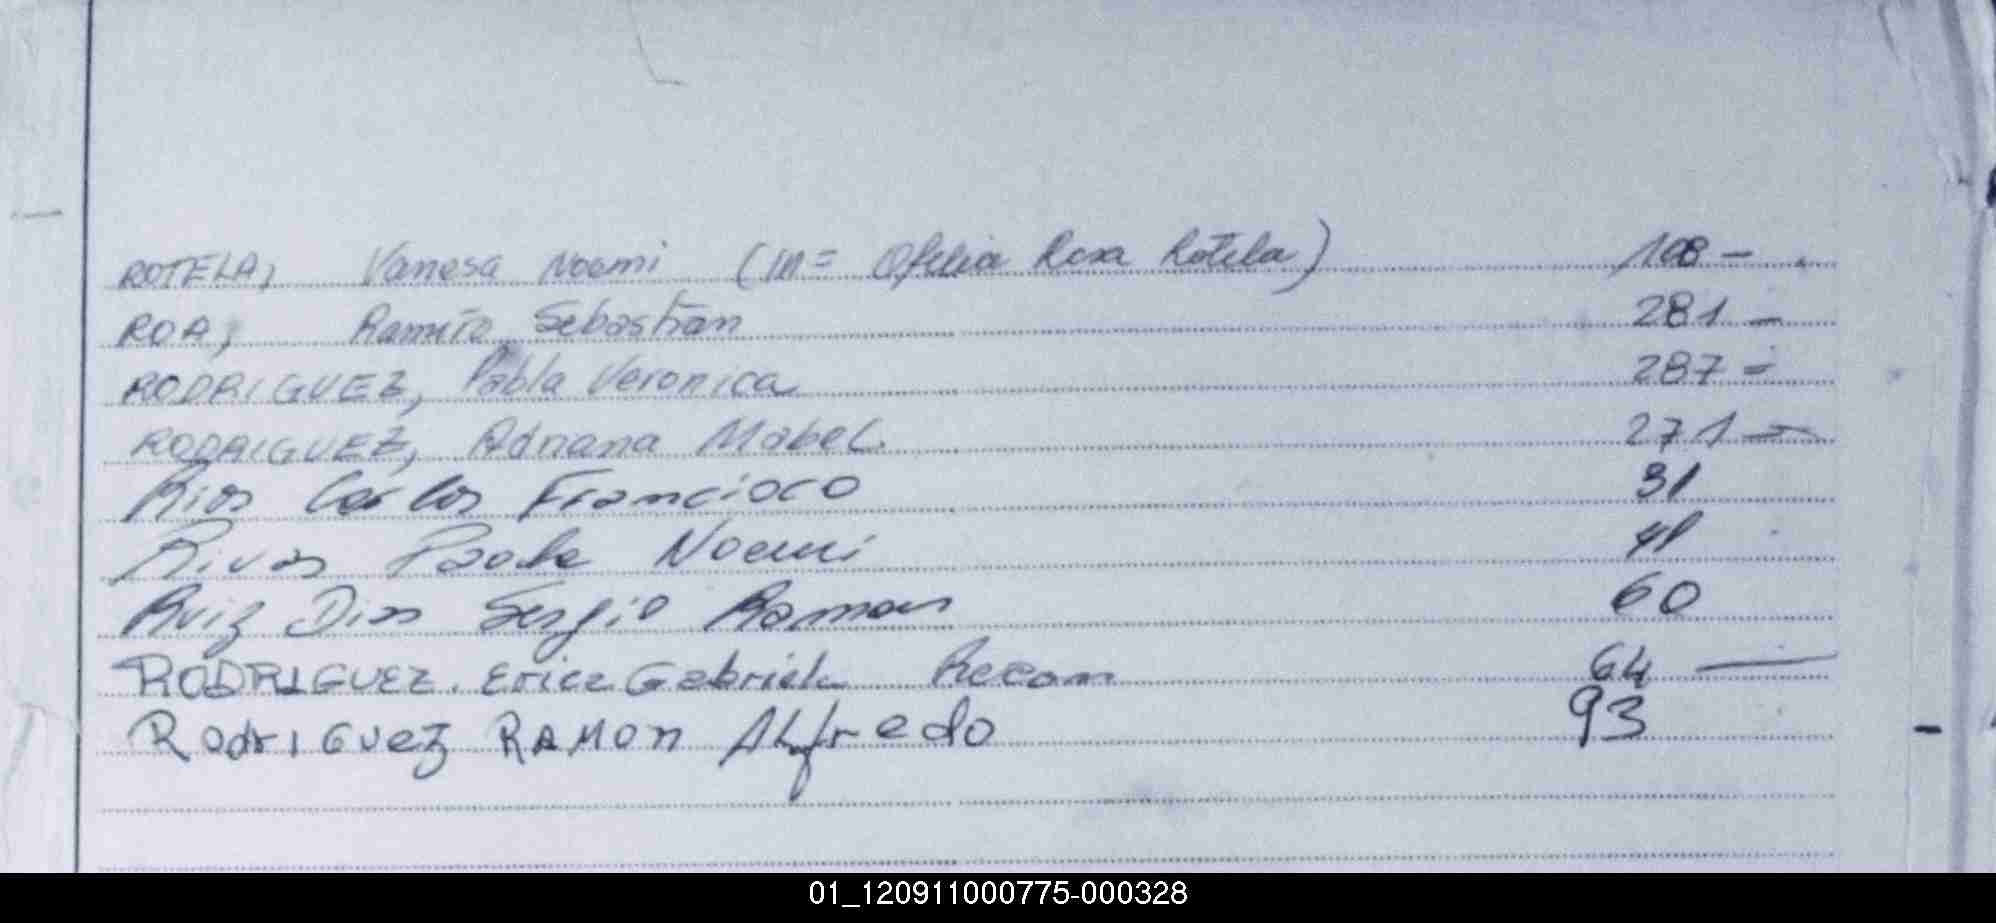 ROTELA, Vanesa Noemi (m= Ofelia Rosa Rotela) 108 -
ROA, Ramiro Sebastian 281 -
RODRIGUEZ, Pabla Veronica 287 =
RODRIGUEZ, Adriana Mabel. 271 -
Rios Carlos Francisco 31
Rivas Paola Noemi 41
Ruiz Dias Sergio Ramon 60
RODRIGUEZ. Erica Gabriela 64 —
RodriGuez RAMON Alfredo 93
01_120911000775-000328